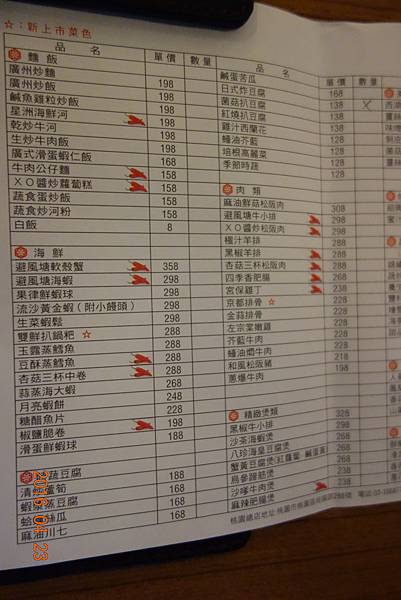 ☆:新上市菜色
品 名 單價 數量
麵 飯
廣州炒麵
廣州炒飯 198
鹹魚雞粒炒飯 198
星洲海鮮河 198
乾炒牛河 198
生炒牛肉飯 198
廣式滑蛋蝦仁飯 198
牛肉公仔麵 168
XO醬炒蘿蔔糕 158
蔬食蛋炒飯 158
蔬食炒河粉 158
白飯 8
海 鮮
避風塘軟殼蟹 358
避風塘海蝦 298
果律鮮蝦球 298
流沙黃金蝦(附小饅頭) 298
生菜蝦鬆 298
雙鮮扒鍋粑 ☆ 288
玉露蒸鱈魚 288
豆酥蒸鱈魚 288
杏菇三杯中卷 288
蒜蒸海大蝦 268
月亮蝦餅 248
糖醋魚片 228
椒鹽脆卷 198
滑蛋鮮蝦球 188
蔬豆腐
清炒蘆筍 188
蝦醬蒸豆腐 168
絲瓜 168
麻油川七 168
品 名 單價 數量
鹹蛋苦瓜
日式炸豆腐 168
菌菇扒豆腐 138
紅燒扒豆腐 138
雞汁西蘭花 138
蠔油芥藍 128
培根高麗菜 128
季節時蔬 128
肉 類
麻油鮮菇松阪肉 308
避風塘牛小排 298
XO醬炒松阪肉 298
橙汁羊排 288
黑椒羊排 288
杏菇三杯松阪肉 288
四季香肥腸 268
宮保雞丁 238
京都排骨 ☆ 238
金蒜排骨 228
左宗棠嫩雞 228
芥藍牛肉 228
蠔油燜牛肉 218
和風松阪豬 198
蔥爆牛肉
精緻煲類
黑椒牛小排 328
沙茶海蝦煲 298
八珍海皇豆腐煲 288
蟹黃豆腐煲(紅蘿蔔、鹹蛋黃) 268
烏參蹄筋煲 238
沙嗲牛肉煲 238
麻辣肥腸煲 238
2016.04.23